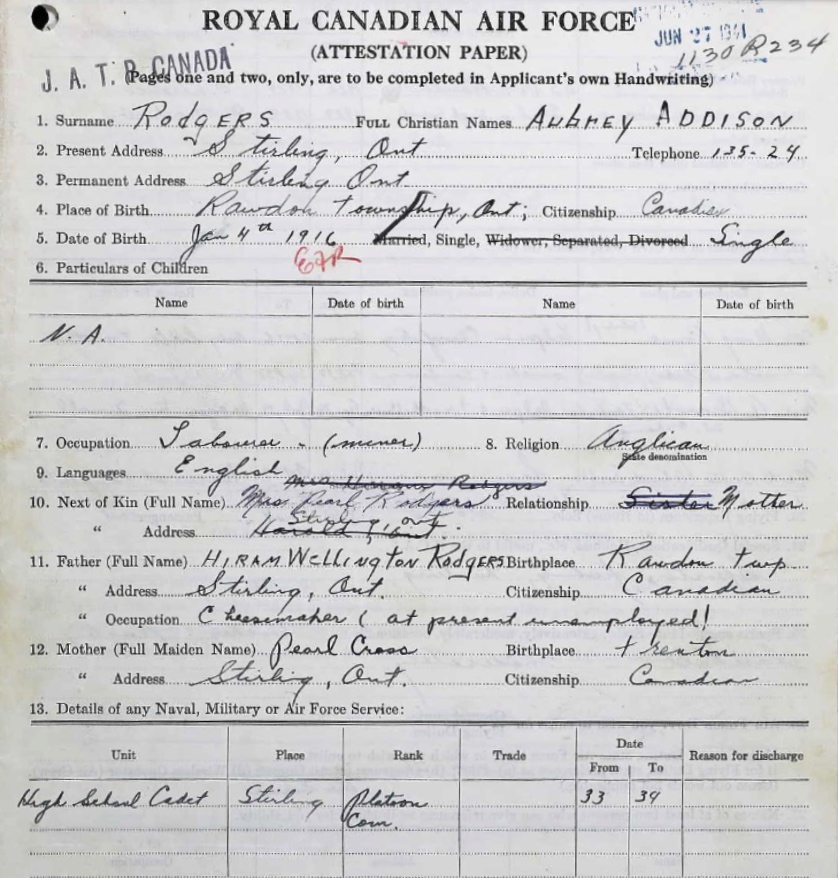 ROYAL CANADIAN AIR FORCE
(ATTESTATION PAPER)
JUN 27 1941
1130 R234
J. A. T. B. CANADA
(Pages one and two, only, are to be completed in Applicant's own Handwriting)
1. Surname Rodgers Full Christian Names Aubrey Addison
2. Present Address Stirling, Ont Telephone 135-24
3. Permanent Address Stirling Ont
4. Place of Birth Rawdon Township, Ont; Citizenship Canadian
5. Date of Birth Jan 4th 1916 Married, Single, Widower, Separated, Divorced Single
6. Particulars of Children
Name Date of birth Name Date of birth
N. A.
7. Occupation Labourer - (miner) 8. Religion Anglican
State denomination
9. Languages English
10. Next of Kin (Full Name) Mrs Pearl Rodgers Relationship Sister Mother
" Address Stirling, Ont.
11. Father (Full Name) Hiram Wellington Rodgers Birthplace Rawdon twp
" Address Stirling, Ont. Citizenship Canadian
" Occupation Cheesemaker (at present unemployed)
12. Mother (Full Maiden Name) Pearl Cross Birthplace Trenton
" Address Stirling, Ont. Citizenship Canadian
13. Details of any Naval, Military or Air Force Service:
Unit Place Rank Trade Date Reason for discharge
From To
High School Cadet Stirling Platoon Com. 33 34